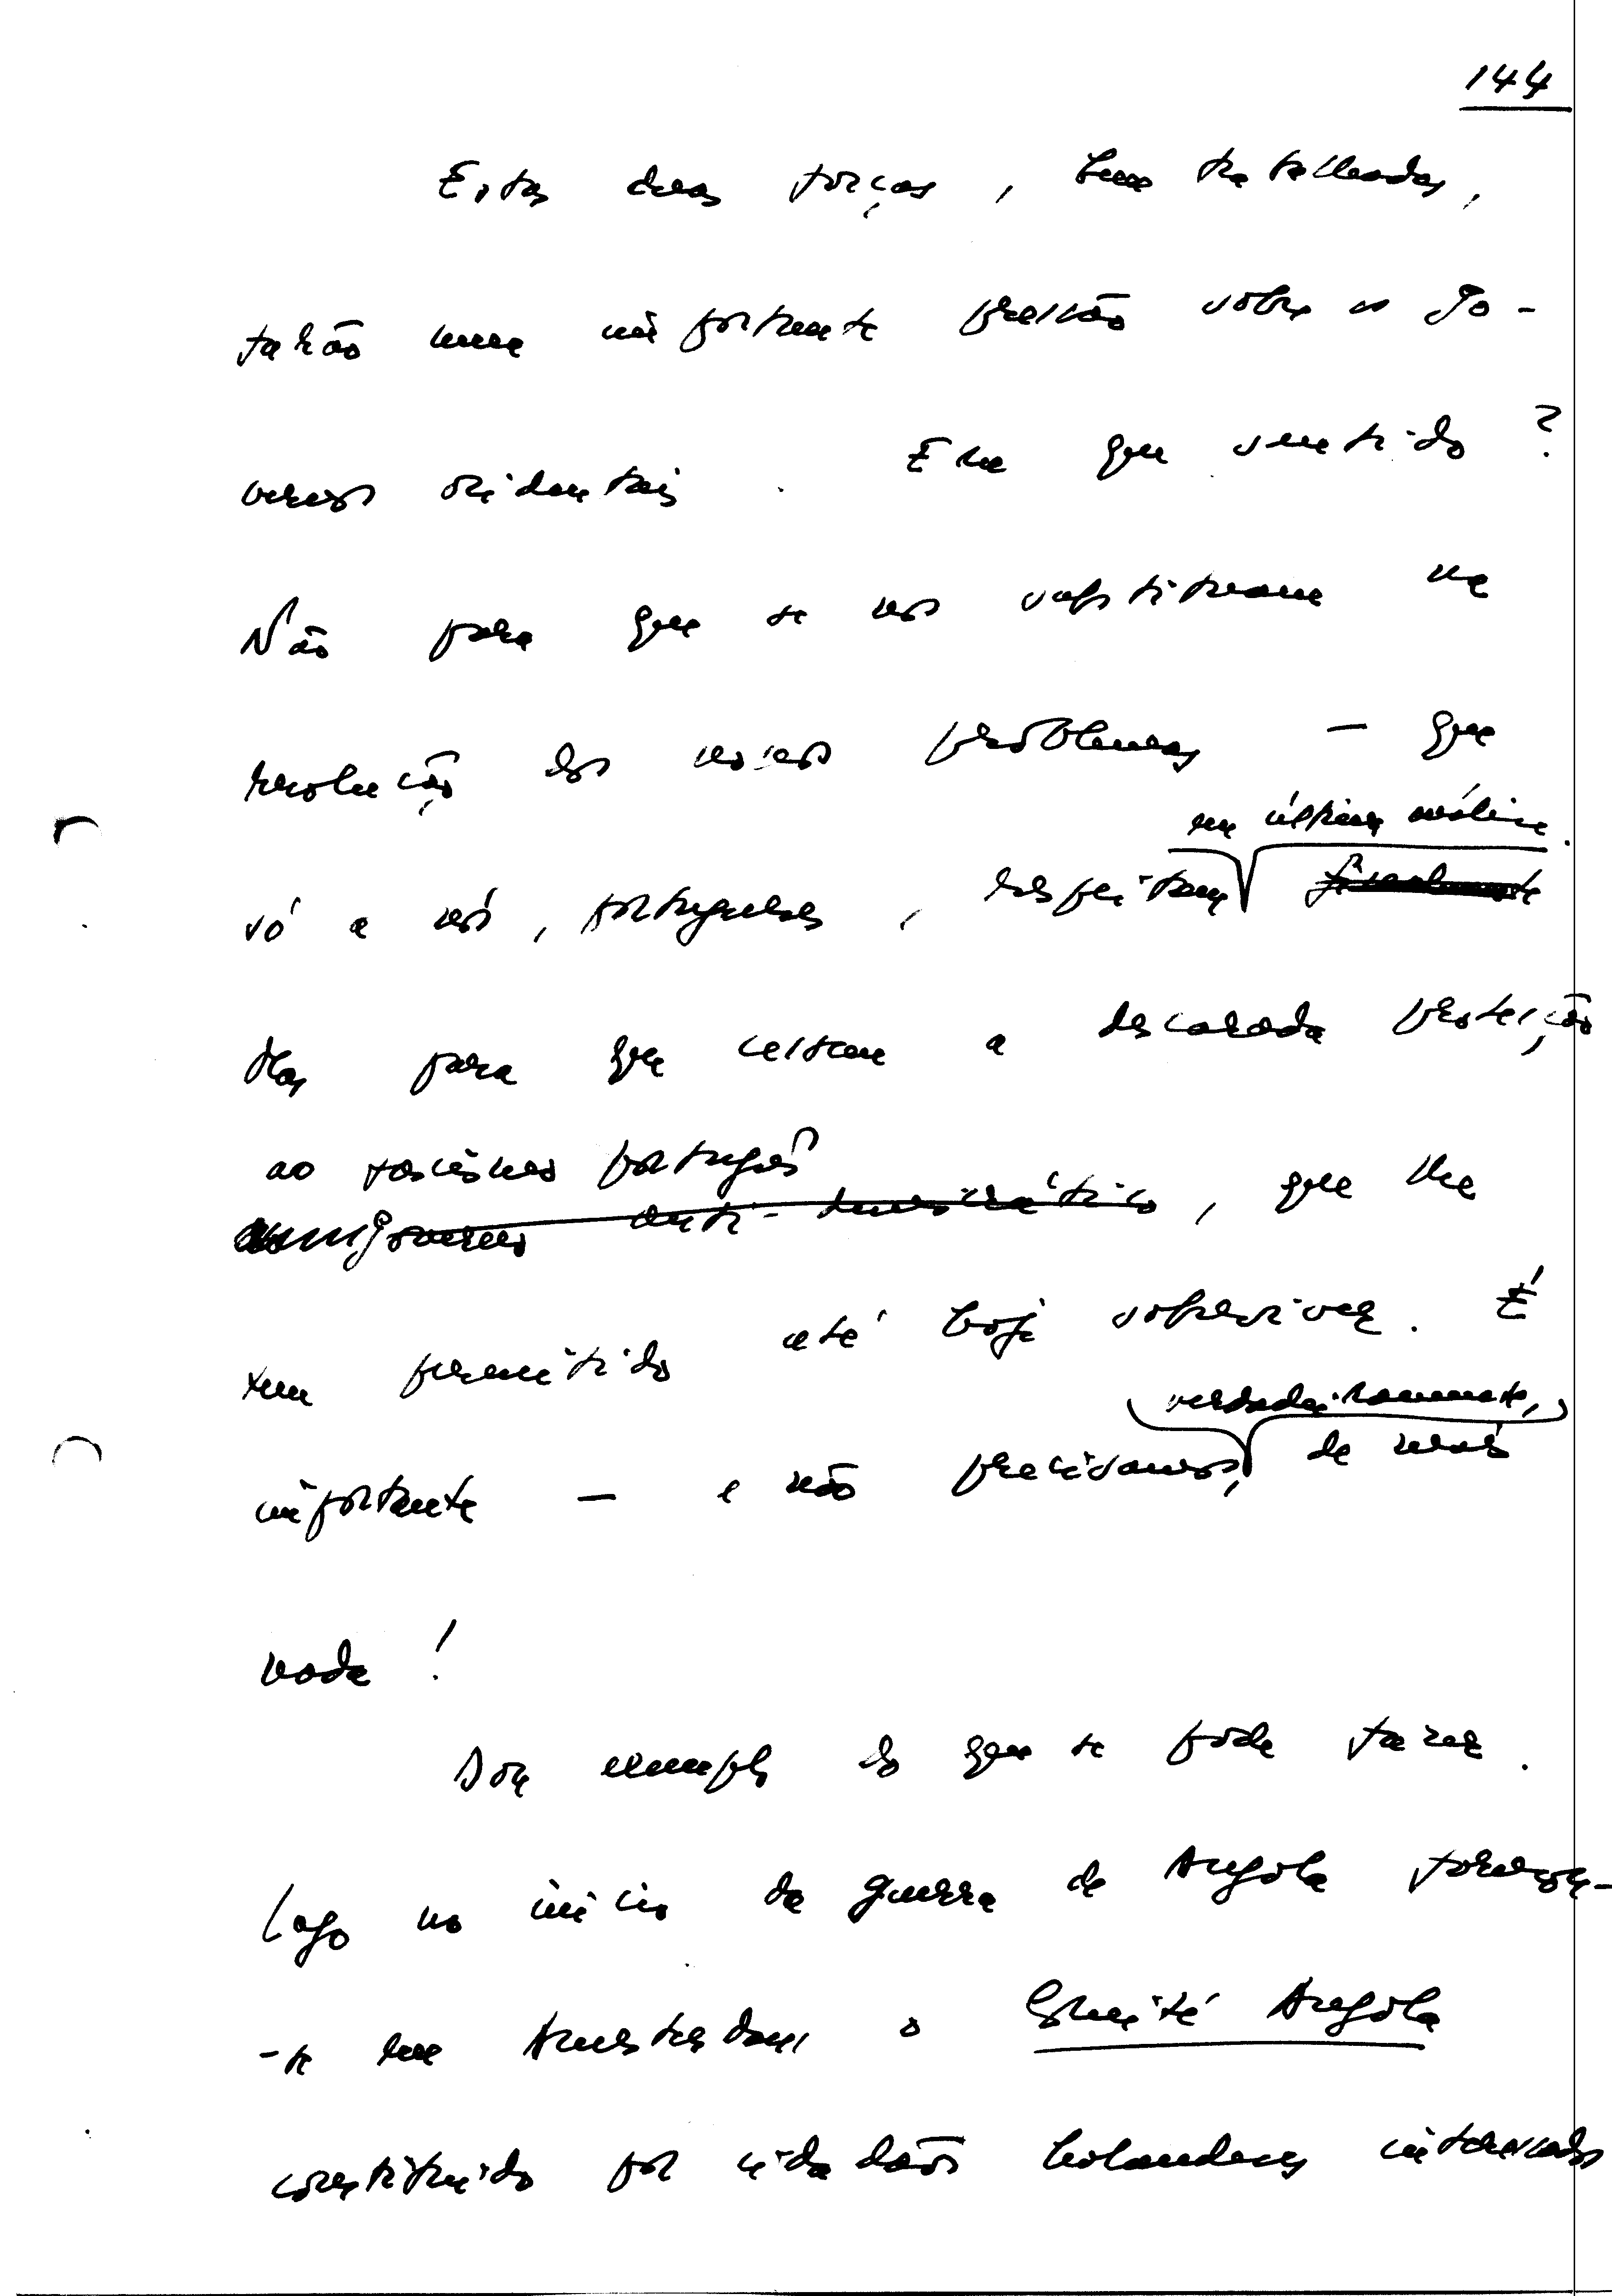 144
Estas duas forças, bem trabalhadas,
farão uma importante pressão sobre os Go-
vernos ocidentais. Em que sentido?
Não para que se nos substituam na
resolução dos nossos problemas — que
em última análise
só a nós, portugueses, respeitam finalmente
Mas para que cessem a descarada protecção
ao fascismo português
governo anti-democrático, que lhe
tem permitido até hoje sobreviver. É
verdadeiramente,
importante — e não precisamos, de mais
nada!
Dou exemplos do que se pode fazer.
Logo no início da guerra de Angola formou-
-se em Amsterdam o Comité Angola
constituido por cidadãos holandeses interessados